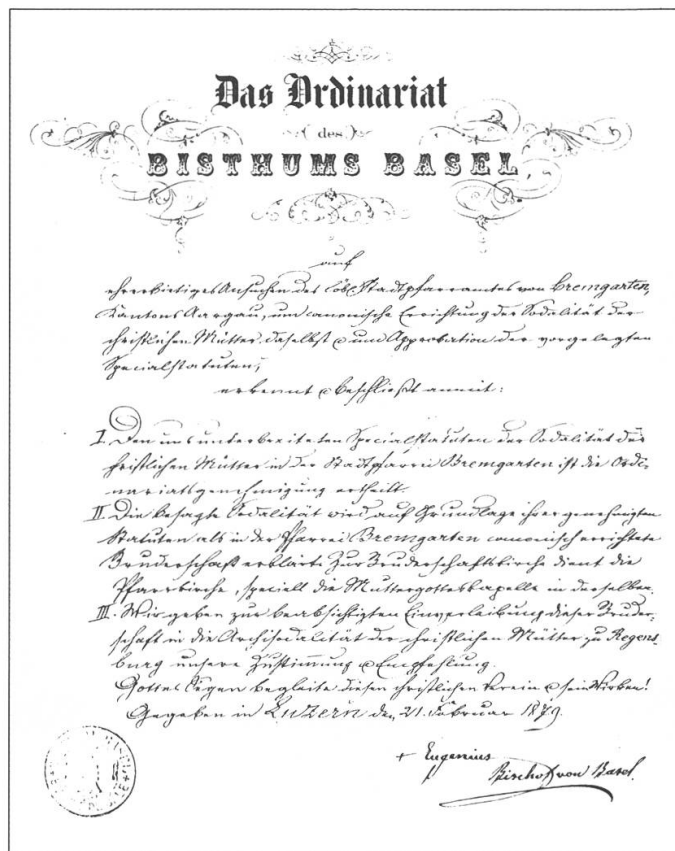 Das Ordinariat
des
BISTHUMS BASEL
auf
ehrerbietiges Ansuchen des löbl. Stadtpfarramtes von Bremgarten,
Kantons Aargau, um canonische Errichtung der Sodalität der
christlichen Mütter daselbst & um Approbation der vorgelegten
Specialstatuten,
erkennt & beschließt anmit:
I. Den uns unterbreiteten Specialstatuten der Sodalität der
christlichen Mütter in der Stadtpfarrei Bremgarten ist die Ordi-
nariatsgenehmigung ertheilt.
II. Die besagte Sodalität wird auf Grundlage ihrer genehmigten
Statuten als in der Pfarrei Bremgarten canonisch errichtete
Bruderschaft erklärt. Zur Bruderschaftskirche dient die
Pfarrkirche, speciell die Muttergotteskapelle in derselben.
III. Wir geben zur beabsichtigten Einverleibung dieser Bruder-
schaft in die Archisodalität der christlichen Mütter zu Regens-
burg unsere Zustimmung & Empfehlung.
Gottes Segen begleite diesen christlichen Verein & sein Wirken!
Gegeben in Luzern den 21. Februar 1879.
+ Eugenius
Bischof von Basel.